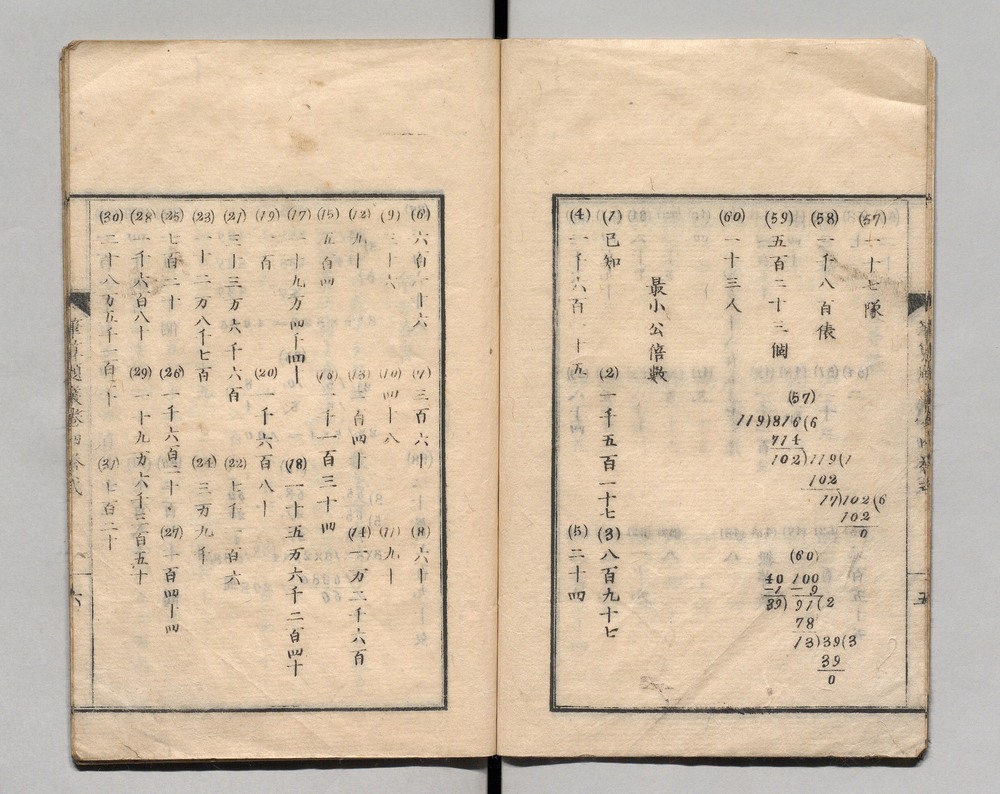 (57) 十七隊
(58) 一千八百俵
(59) 五百二十三個
(60) 一十三人
(57)
119)816(6
714
102)119(1
102
17)102(6
102
0
(60)
40 100
-1 -9
39) 91(2
78
13)39(3
39
0
最小公倍數
(1) 已知 (2) 一千五百一十七 (3) 八百九十七
(4) 一千六百一十五 (5) 二十四
五
(6) 六百六十六 (7) 三百六十 (8) 六十
(9) 三十六 (10) 四十八 (11) 九十
(12) 九十 (13) 百四十 (14) 一万二千六百
(15) 五百四 (16) 二千一百三十四
(17) 一十九万四千四十 (18) 一十五万六千二百四十
(19) 一百 (20) 一千六百八十
(21) 三十三万六千六百 (22) 七千二百六
(23) 一十二万八千七百 (24) 三万九千
(25) 七百二十 (26) 一千六百二十 (27) 百四十四
(28) 一千六百八十 (29) 一十九万六千三百五十
(30) 二十八万五千二百二十 (31) 七百二十
六